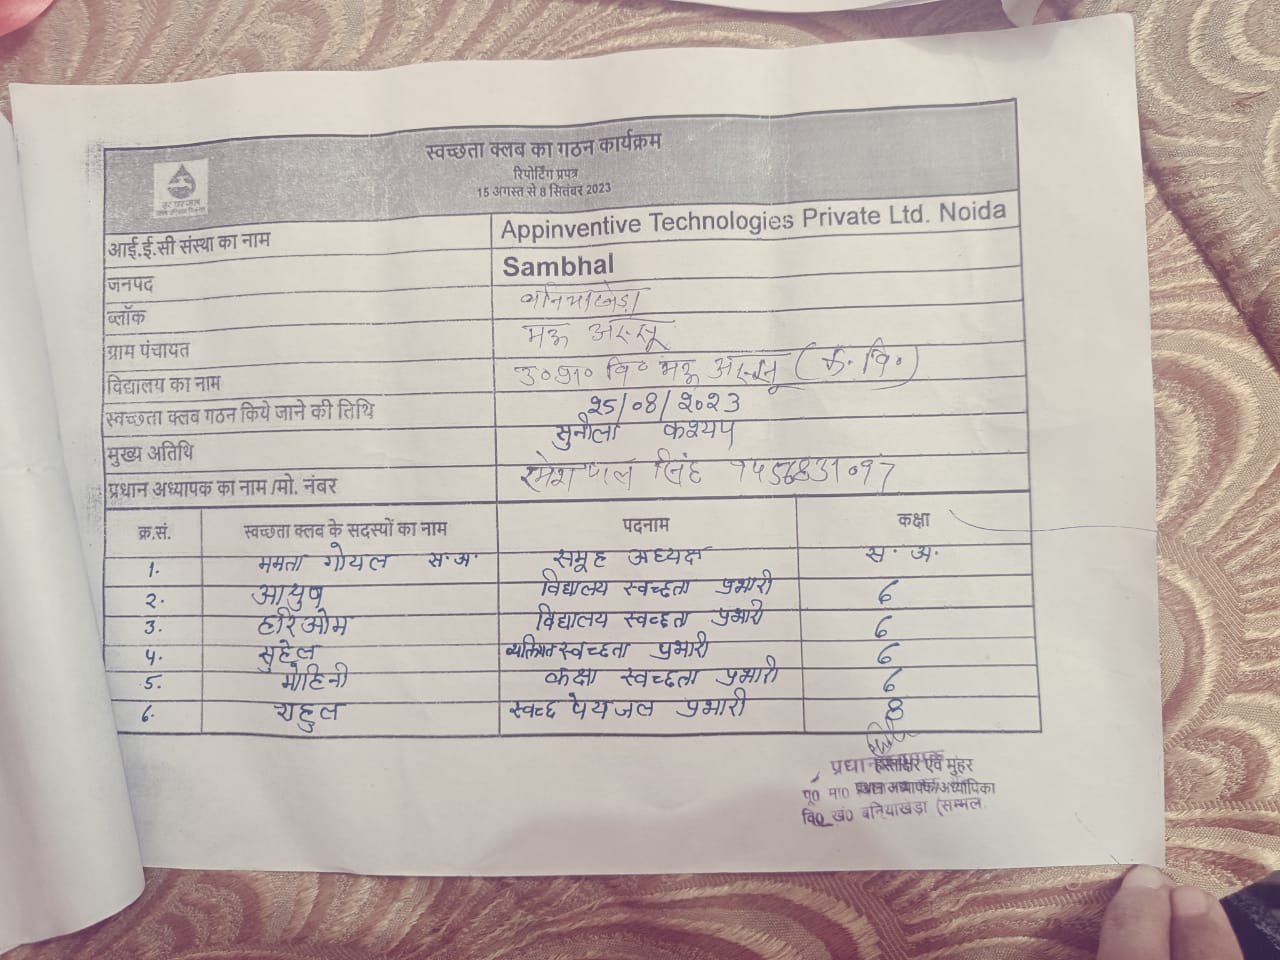 स्वच्छता क्लब का गठन कार्यक्रम
रिपोर्टिंग प्रपत्र
15 अगस्त से 8 सितंबर 2023
हर घर जल
आई.ई.सी संस्था का नाम Appinventive Technologies Private Ltd. Noida
जनपद Sambhal
ब्लॉक बनियाखेड़ा
ग्राम पंचायत मऊ अस्सू
विद्यालय का नाम उ०प्रा० वि० मऊ अस्सू (क. वि.)
स्वच्छता क्लब गठन किये जाने की तिथि 25/08/2023
मुख्य अतिथि सुनीला कश्यप
प्रधान अध्यापक का नाम /मो. नंबर रमेश पाल सिंह
क्र.सं. स्वच्छता क्लब के सदस्यों का नाम पदनाम कक्षा
1. ममता गोयल स.अ. समूह अध्यक्ष स. अ.
2. आयुष विद्यालय स्वच्छता प्रभारी 6
3. हरिओम विद्यालय स्वच्छता प्रभारी 6
4. सुहेल व्यक्तिगत स्वच्छता प्रभारी 6
5. मोहिनी कक्षा स्वच्छता प्रभारी 6
6. राहुल स्वच्छ पेयजल प्रभारी 8
हस्ताक्षर एवं मुंहर
प्रधान अध्यापक/अध्यापिका
वि० खं० बनियाखेड़ा (सम्भल